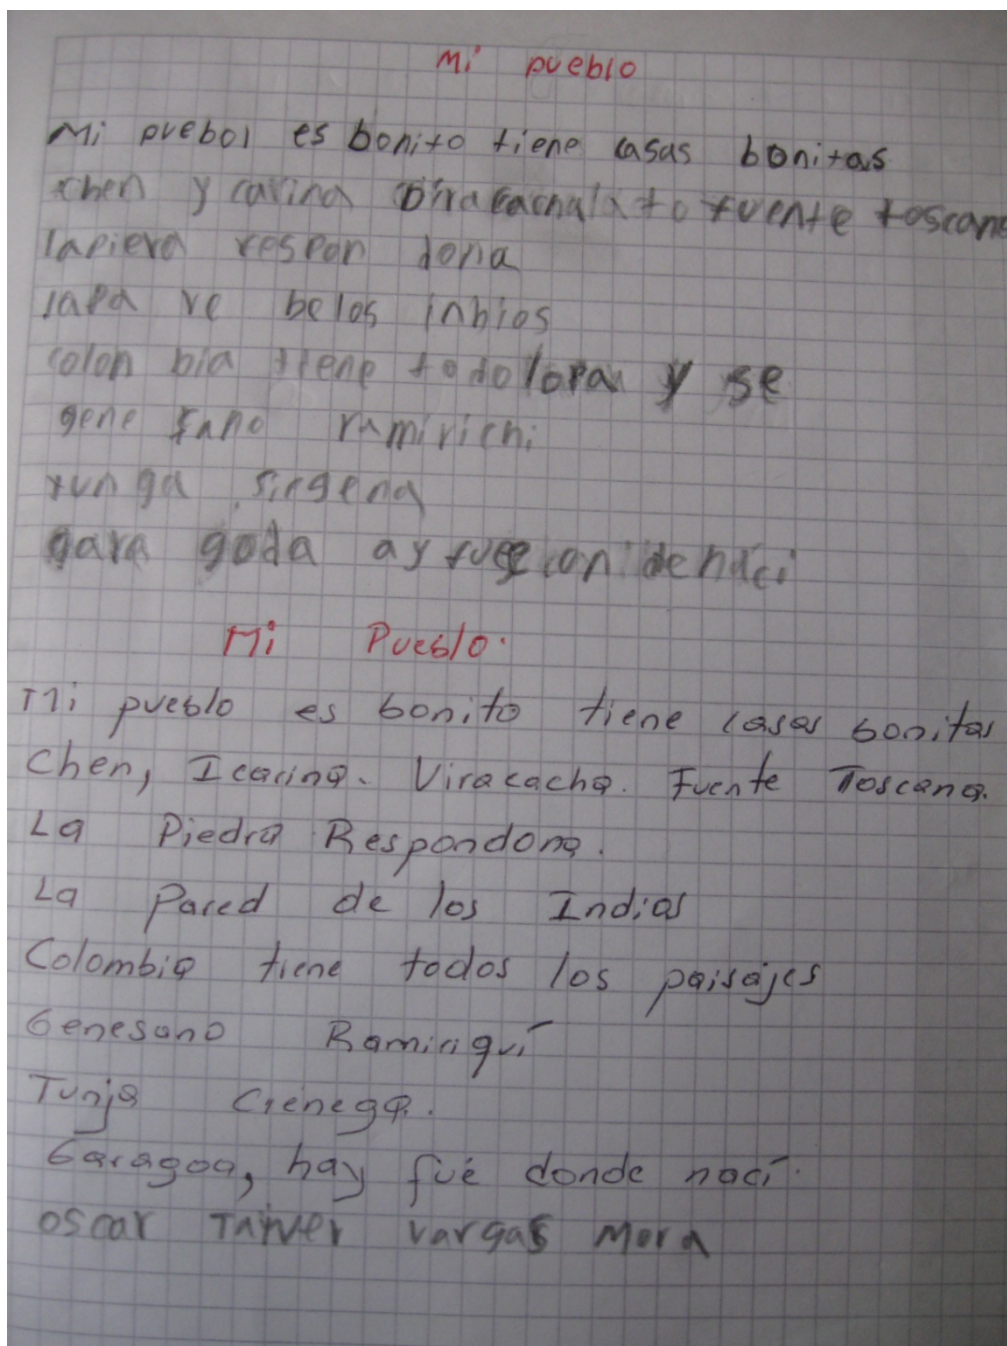 Mi pueblo
Mi puebol es bonito tiene casas bonitas
chen y carina fuente toscana
lapiera respon dona
lapa re belos inbios
colon bia tiene todolopa y se
gene sano ramirichi
tunga siegena
gara goda ay fue
Mi Pueblo.
Mi pueblo es bonito tiene casas bonitas
Chen, Icarina. Viracacha. Fuente Toscana.
La Piedra Respondona.
La Pared de los Indios
Colombia tiene todos los paisajes
Genesano Ramiriquí
Tunja Cienega.
Garagoa, hay fué donde nací.
oscar vargas Mora